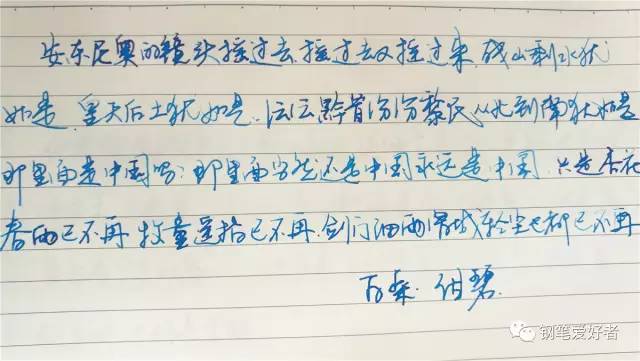 安东尼奥的镜头摇过去摇过去又摇过来.残山剩水犹
如是.皇天后土犹如是.纭纭黔首纷纷黎民从北到南犹如是
那里面是中国吗 那里面当然还是中国永远是中国.只是杏花
春雨已不再 牧童遥指已不再.剑门细雨渭城轻尘也都已不再
碧
钢笔爱好者